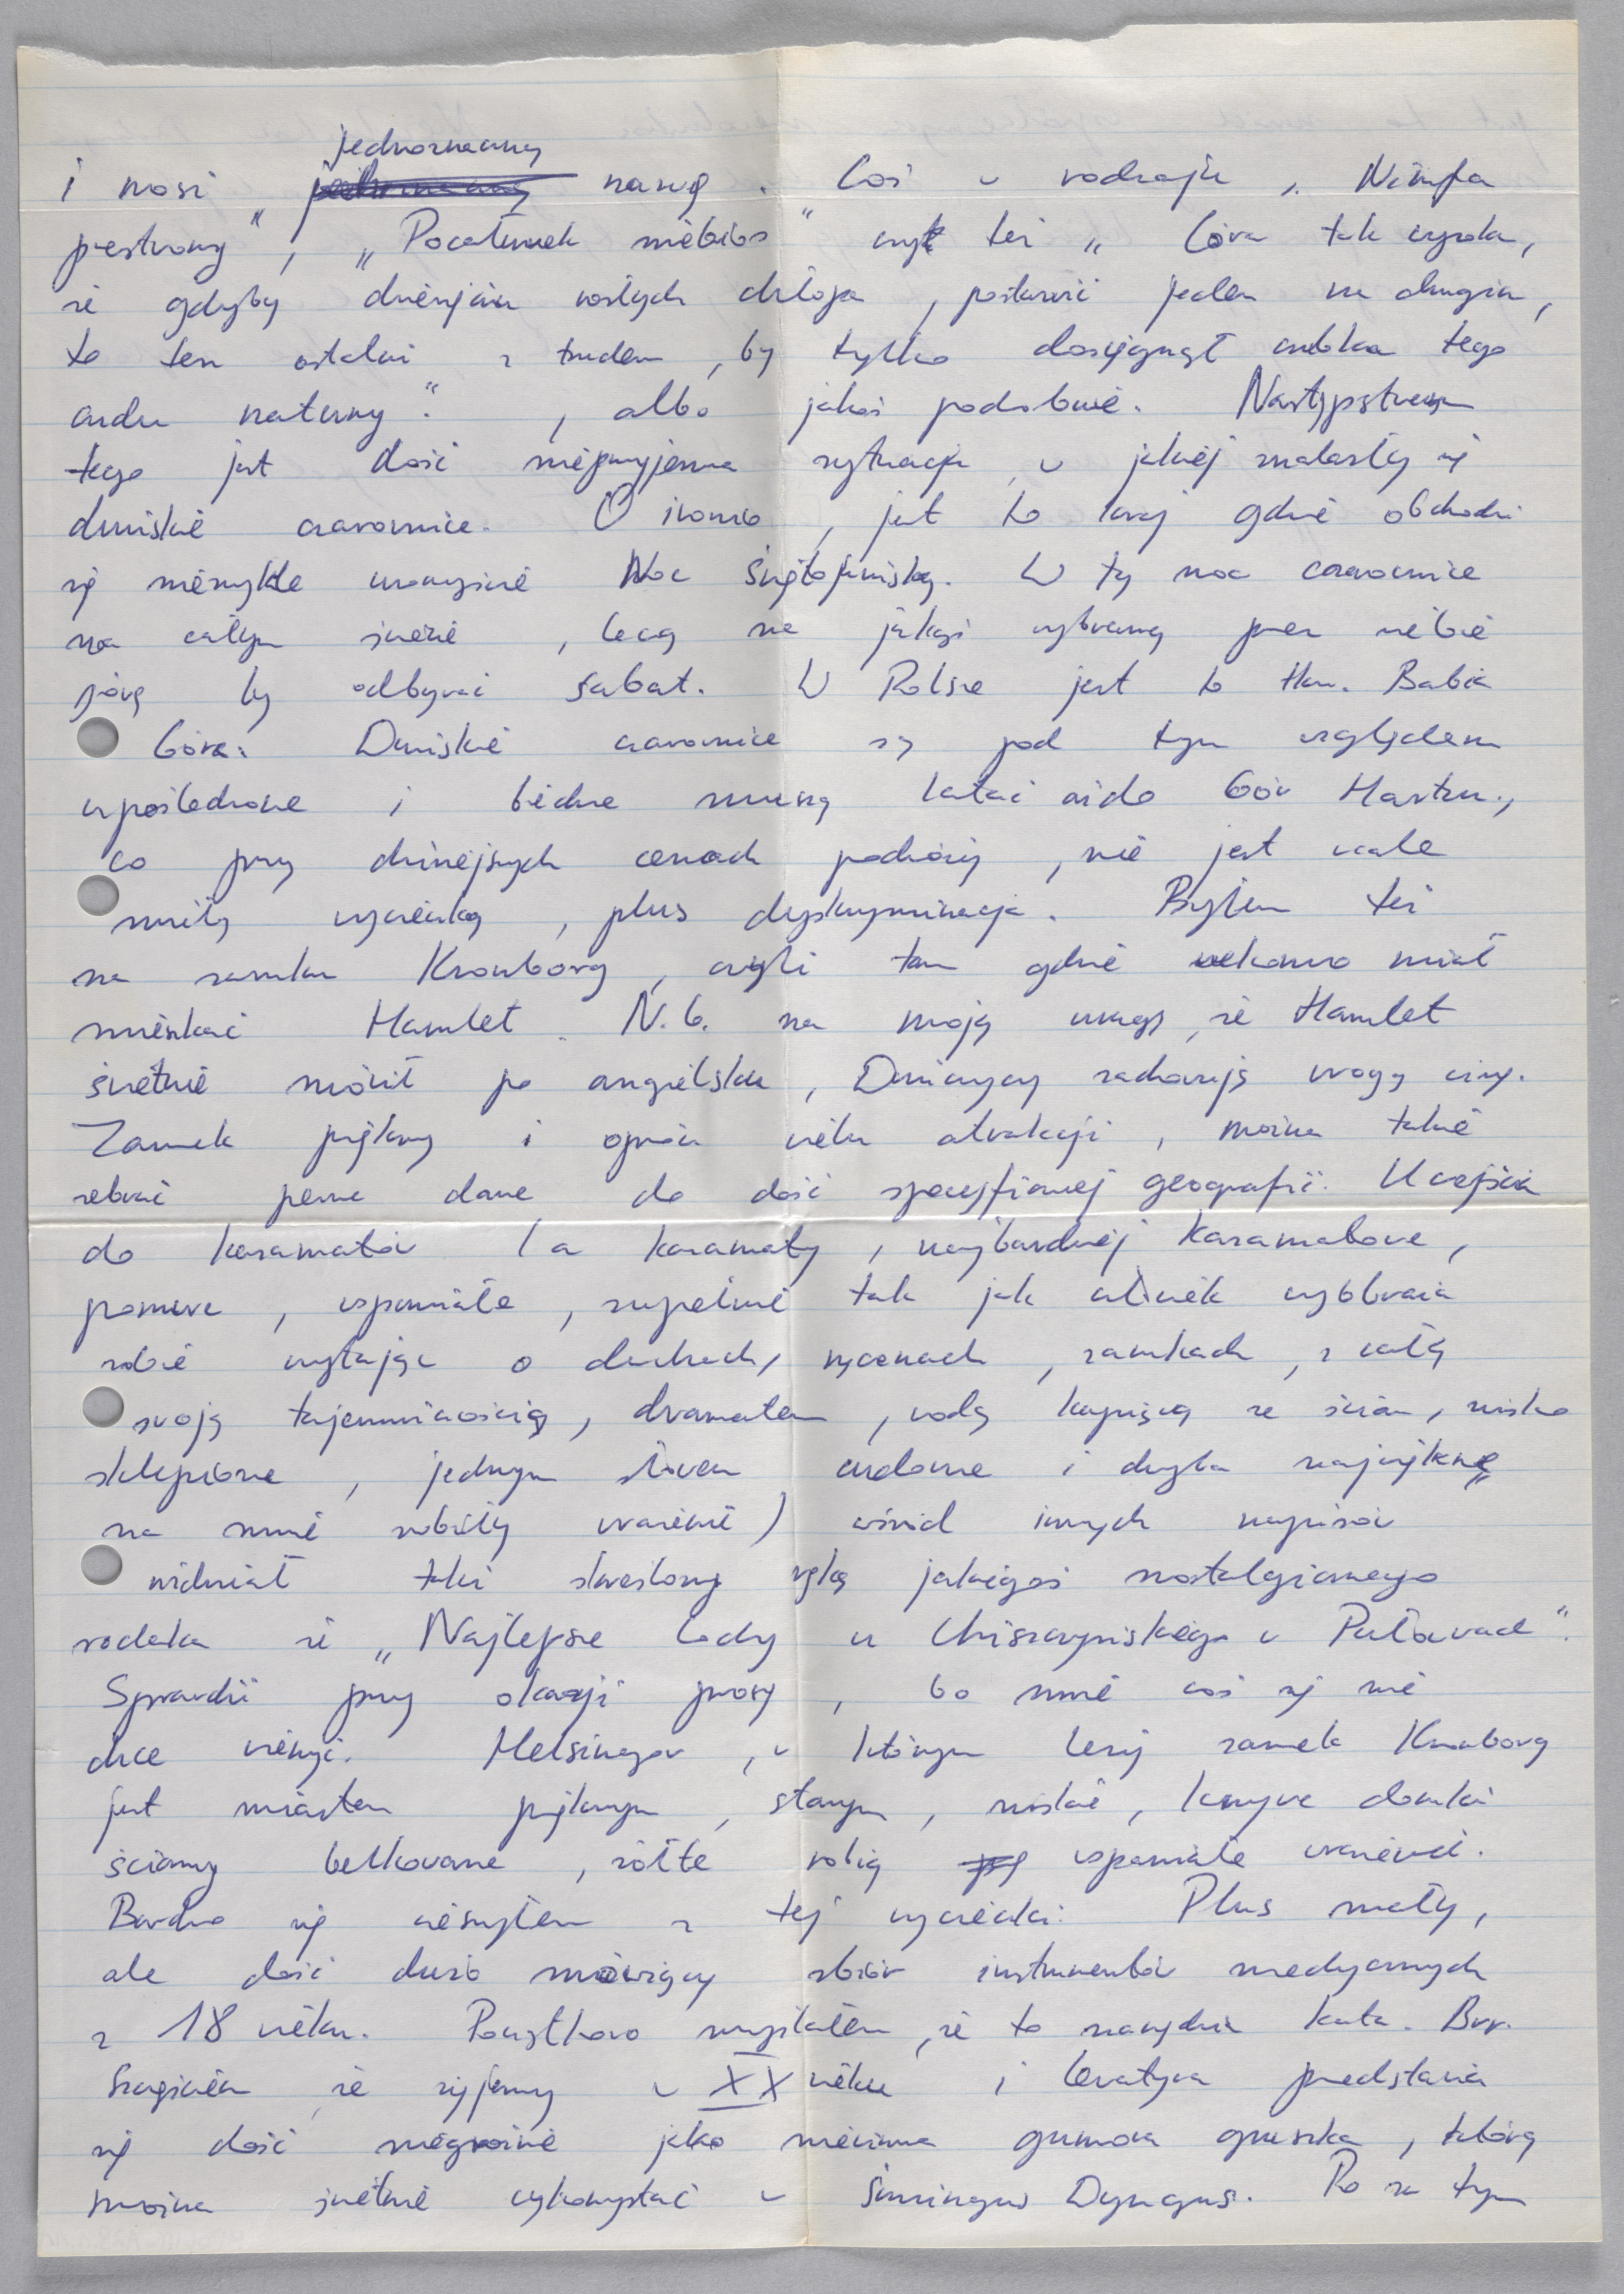 jednoznaczną
i nosi jednoznaczną nazwę. Coś w rodzaju „Nimfa
przestrony”, „Pocałunek niebios” czy też „Góra tak wysoka,
że gdyby dziesięciu rosłych chłopa, postawić jeden na drugim,
to ten ostatni z trudem, by tylko dosięgnął czubka tego
cudu natury”, albo jakoś podobnie. Następstwem
tego jest dość nieprzyjemna sytuacja w jakiej znalazły się
duńskie czarownice. O ironio, jest to kraj gdzie obchodzi
się niezwykle uroczyście Noc Świętojańską. W tę noc czarownice
na całym świecie, lecą na jakąś wybraną przez siebie
górę by odbywać sabat. W Polsce jest to tzw. Babia
Góra. Duńskie czarownice są pod tym względem
upośledzone i biedne muszą latać aż do Gór Hartzu,
co przy dzisiejszych cenach podróży, nie jest wcale
miłą wycieczką, plus dyskryminacja. Byłem też
na zamku Kronborg, czyli tam gdzie rzekomo miał
mieszkać Hamlet. N.b. na moją uwagę, że Hamlet
świetnie mówił po angielsku, Duńczycy zachowują wrogą ciszę.
Zamek piękny i oprócz wielu atrakcji, można także
zebrać pewne dane do dość specyficznej geografii. U wejścia
do kazamatów (a kazamaty, najbardziej kazamatowe,
ponure, wspaniałe, zupełnie tak jak człowiek wyobraża
sobie czytając o duchach, rycerzach, zamkach, z całą
swoją tajemniczością, dramatem, wodą kapiącą ze ścian, nisko
sklepione, jednym słowem cudowne i chyba najpiękne
na mnie robiły wrażenie) wśród innych napisów
widniał taki skreślony ręką jakiegoś nostalgicznego
rodaka że „Najlepsze lody u Chiszczyńskiego w Puławach”.
Sprawdź przy okazji proszę, bo mnie coś się nie
chce wierzyć. Helsingor, w którym leży zamek Kronborg
jest miastem pięknym, starym, niskie, krzywe domki
ściany belkowane, żółte robią wspaniałe wrażenie.
Bardzo się cieszyłem z tej wycieczki. Plus mały,
ale dość dużo mówiący zbiór instrumentów medycznych
z 18 wieku. Początkowo myślałem, że to narzędzia kata. Brr.
Szczęściem, że żyjemy w XX wieku i lewatywa przedstawia
się dość niegroźnie jako niewinna gumowa gruszka, którą
można świetnie wykorzystać w Śmingus Dyngus. Po za tym